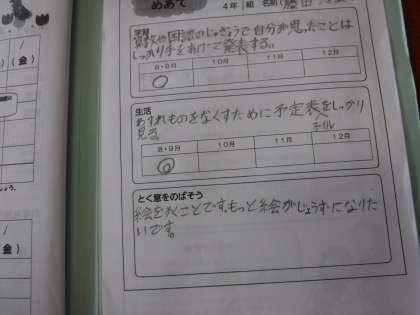 めあて
4年 組 名前(
学習
算数や国語のじゅぎょうで自分が思ったことは
しっかり手をあげて発表する。
8・9月 10月 11月 12月
生活
わすれものをなくすために予定表をしっかり
見る。
8・9月 10月 11月 12月
とく意をのばそう
絵をかくことです。もっと絵がじょうずになりた
いです。
(金)
(金)